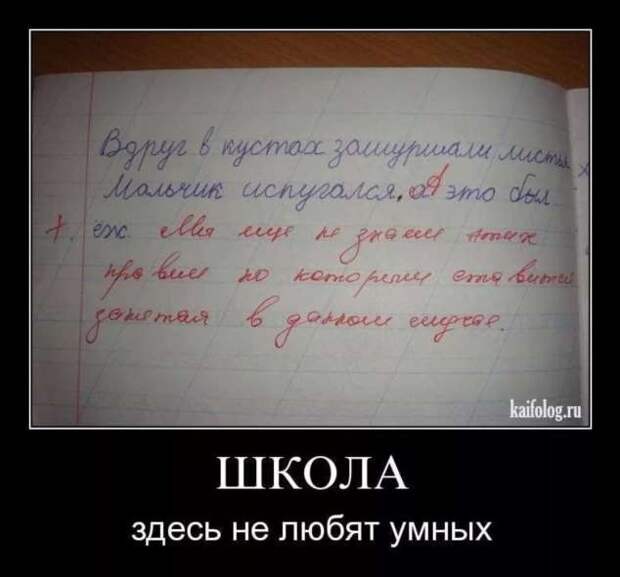 Вдруг в кустах зашуршали листья
Мальчик испугался, а это был
ёж. Мы еще не знаем этих
правил по которым ставится
запятая в данном случае.
kaifolog.ru
ШКОЛА
здесь не любят умных